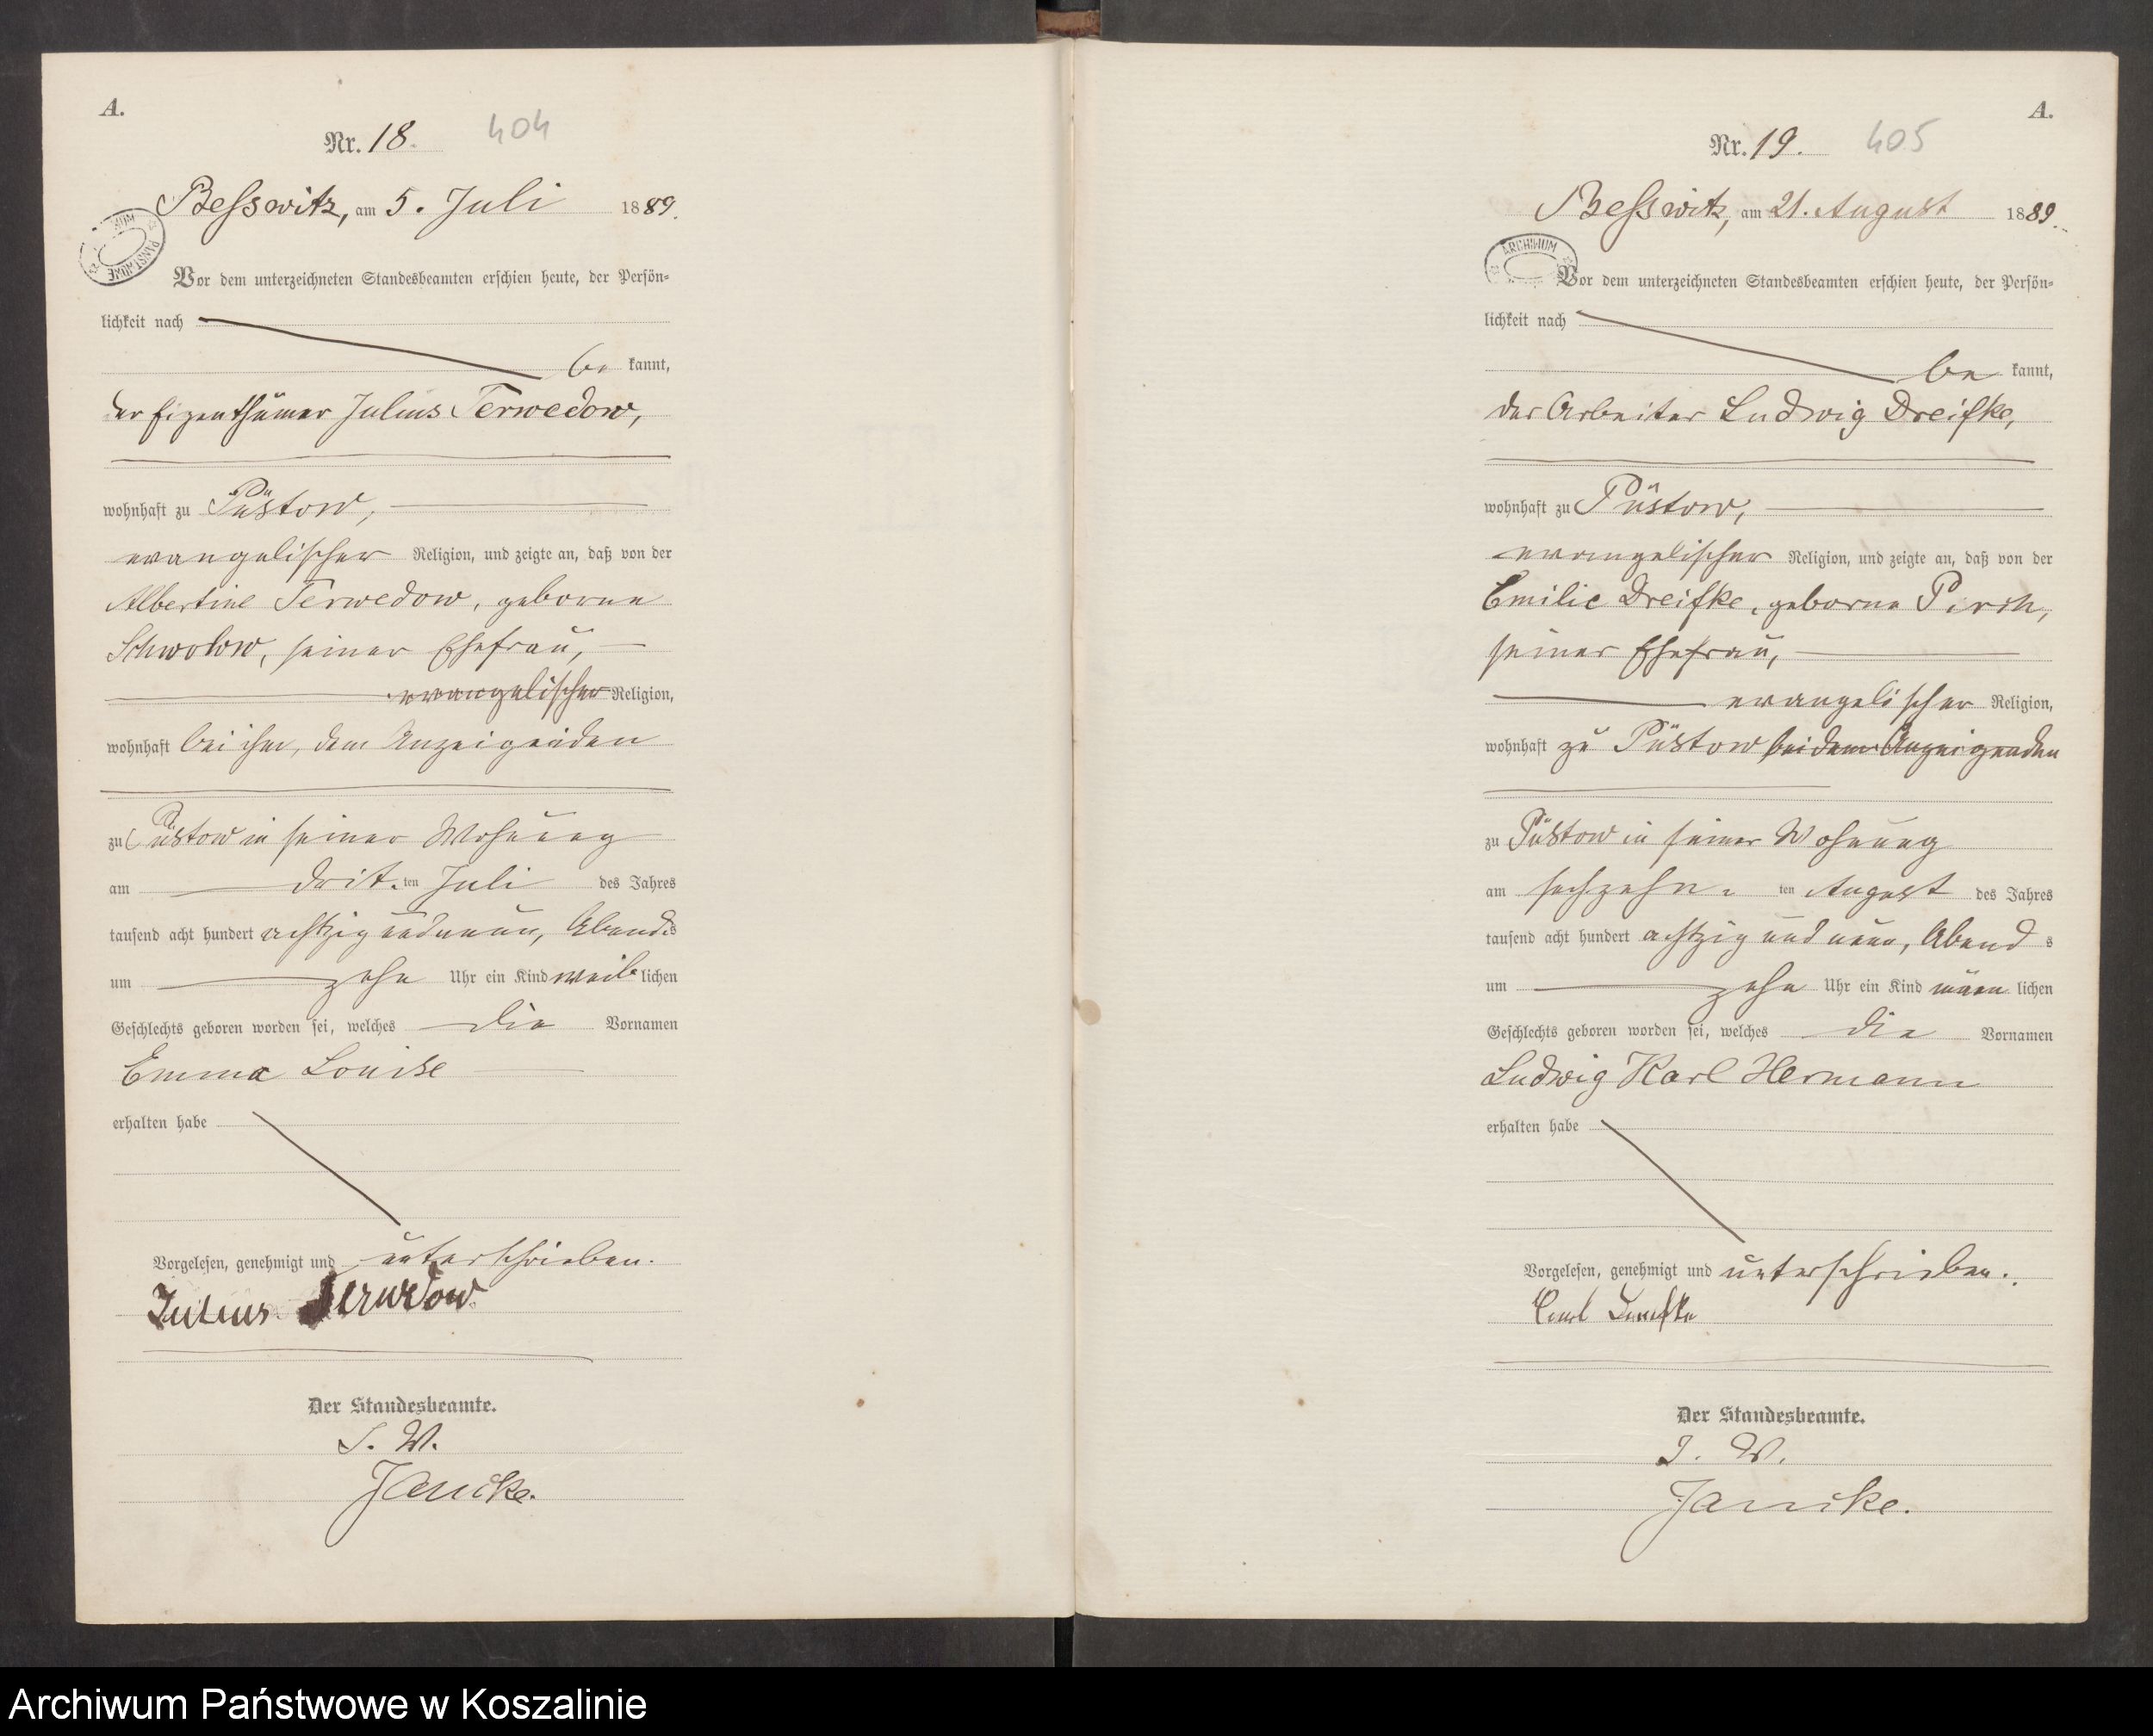 A.
Nr. 18. 404
Besswitz, am 5. Juli 1889.
Vor dem unterzeichneten Standesbeamten erschien heute, der Persön-
lichkeit nach
be kannt,
der Eigenthümer Julius Terwedow,
wohnhaft zu Püstow,
evangelischer Religion, und zeigte an, daß von der
Albertine Terwedow, geborne
Schwolow, seiner Ehefrau,
evangelischer Religion,
wohnhaft bei ihm, dem Anzeigenden
zu Püstow in seiner Wohnung
am drit. ten Juli des Jahres
tausend acht hundert achtzig und neun, Abends
um zehn Uhr ein Kind weib lichen
Geschlechts geboren worden sei, welches die Vornamen
Emma Louise
erhalten habe
Vorgelesen, genehmigt und unterschrieben.
Julius Terwedow
Der Standesbeamte.
J. V.
Jancke.
A.
Nr. 19. 405
Besswitz, am 21. August 1889.
ARCHIWUM
Vor dem unterzeichneten Standesbeamten erschien heute, der Persön-
lichkeit nach
be kannt,
der Arbeiter Ludwig Dreifke,
wohnhaft zu Püstow,
evangelischer Religion, und zeigte an, daß von der
Emilie Dreifke, geborne Pirch,
seiner Ehefrau,
evangelischer Religion,
wohnhaft zu Püstow bei dem Anzeigenden
zu Püstow in seiner Wohnung
am sechzehn. ten August des Jahres
tausend acht hundert achtzig und neun, Abend s
um zehn Uhr ein Kind männ lichen
Geschlechts geboren worden sei, welches die Vornamen
Ludwig Karl Hermann
erhalten habe
Vorgelesen, genehmigt und unterschrieben.
Der Standesbeamte.
J. V.
Jancke.
Archiwum Państwowe w Koszalinie